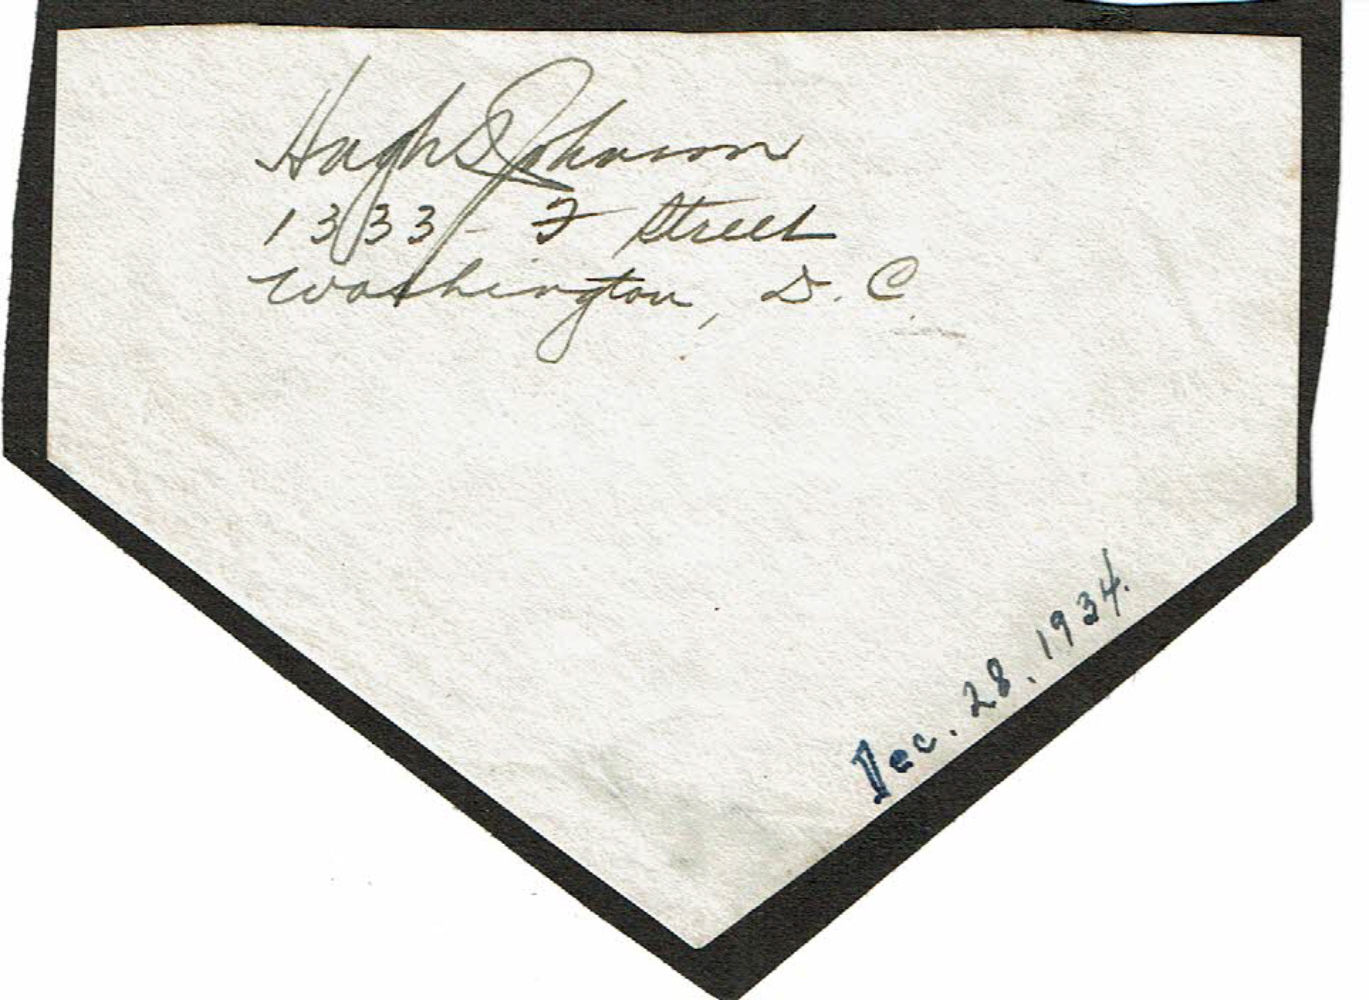 Hugh S Johnson
1333 - F Street
Washington, D. C.
Dec. 28. 1934.